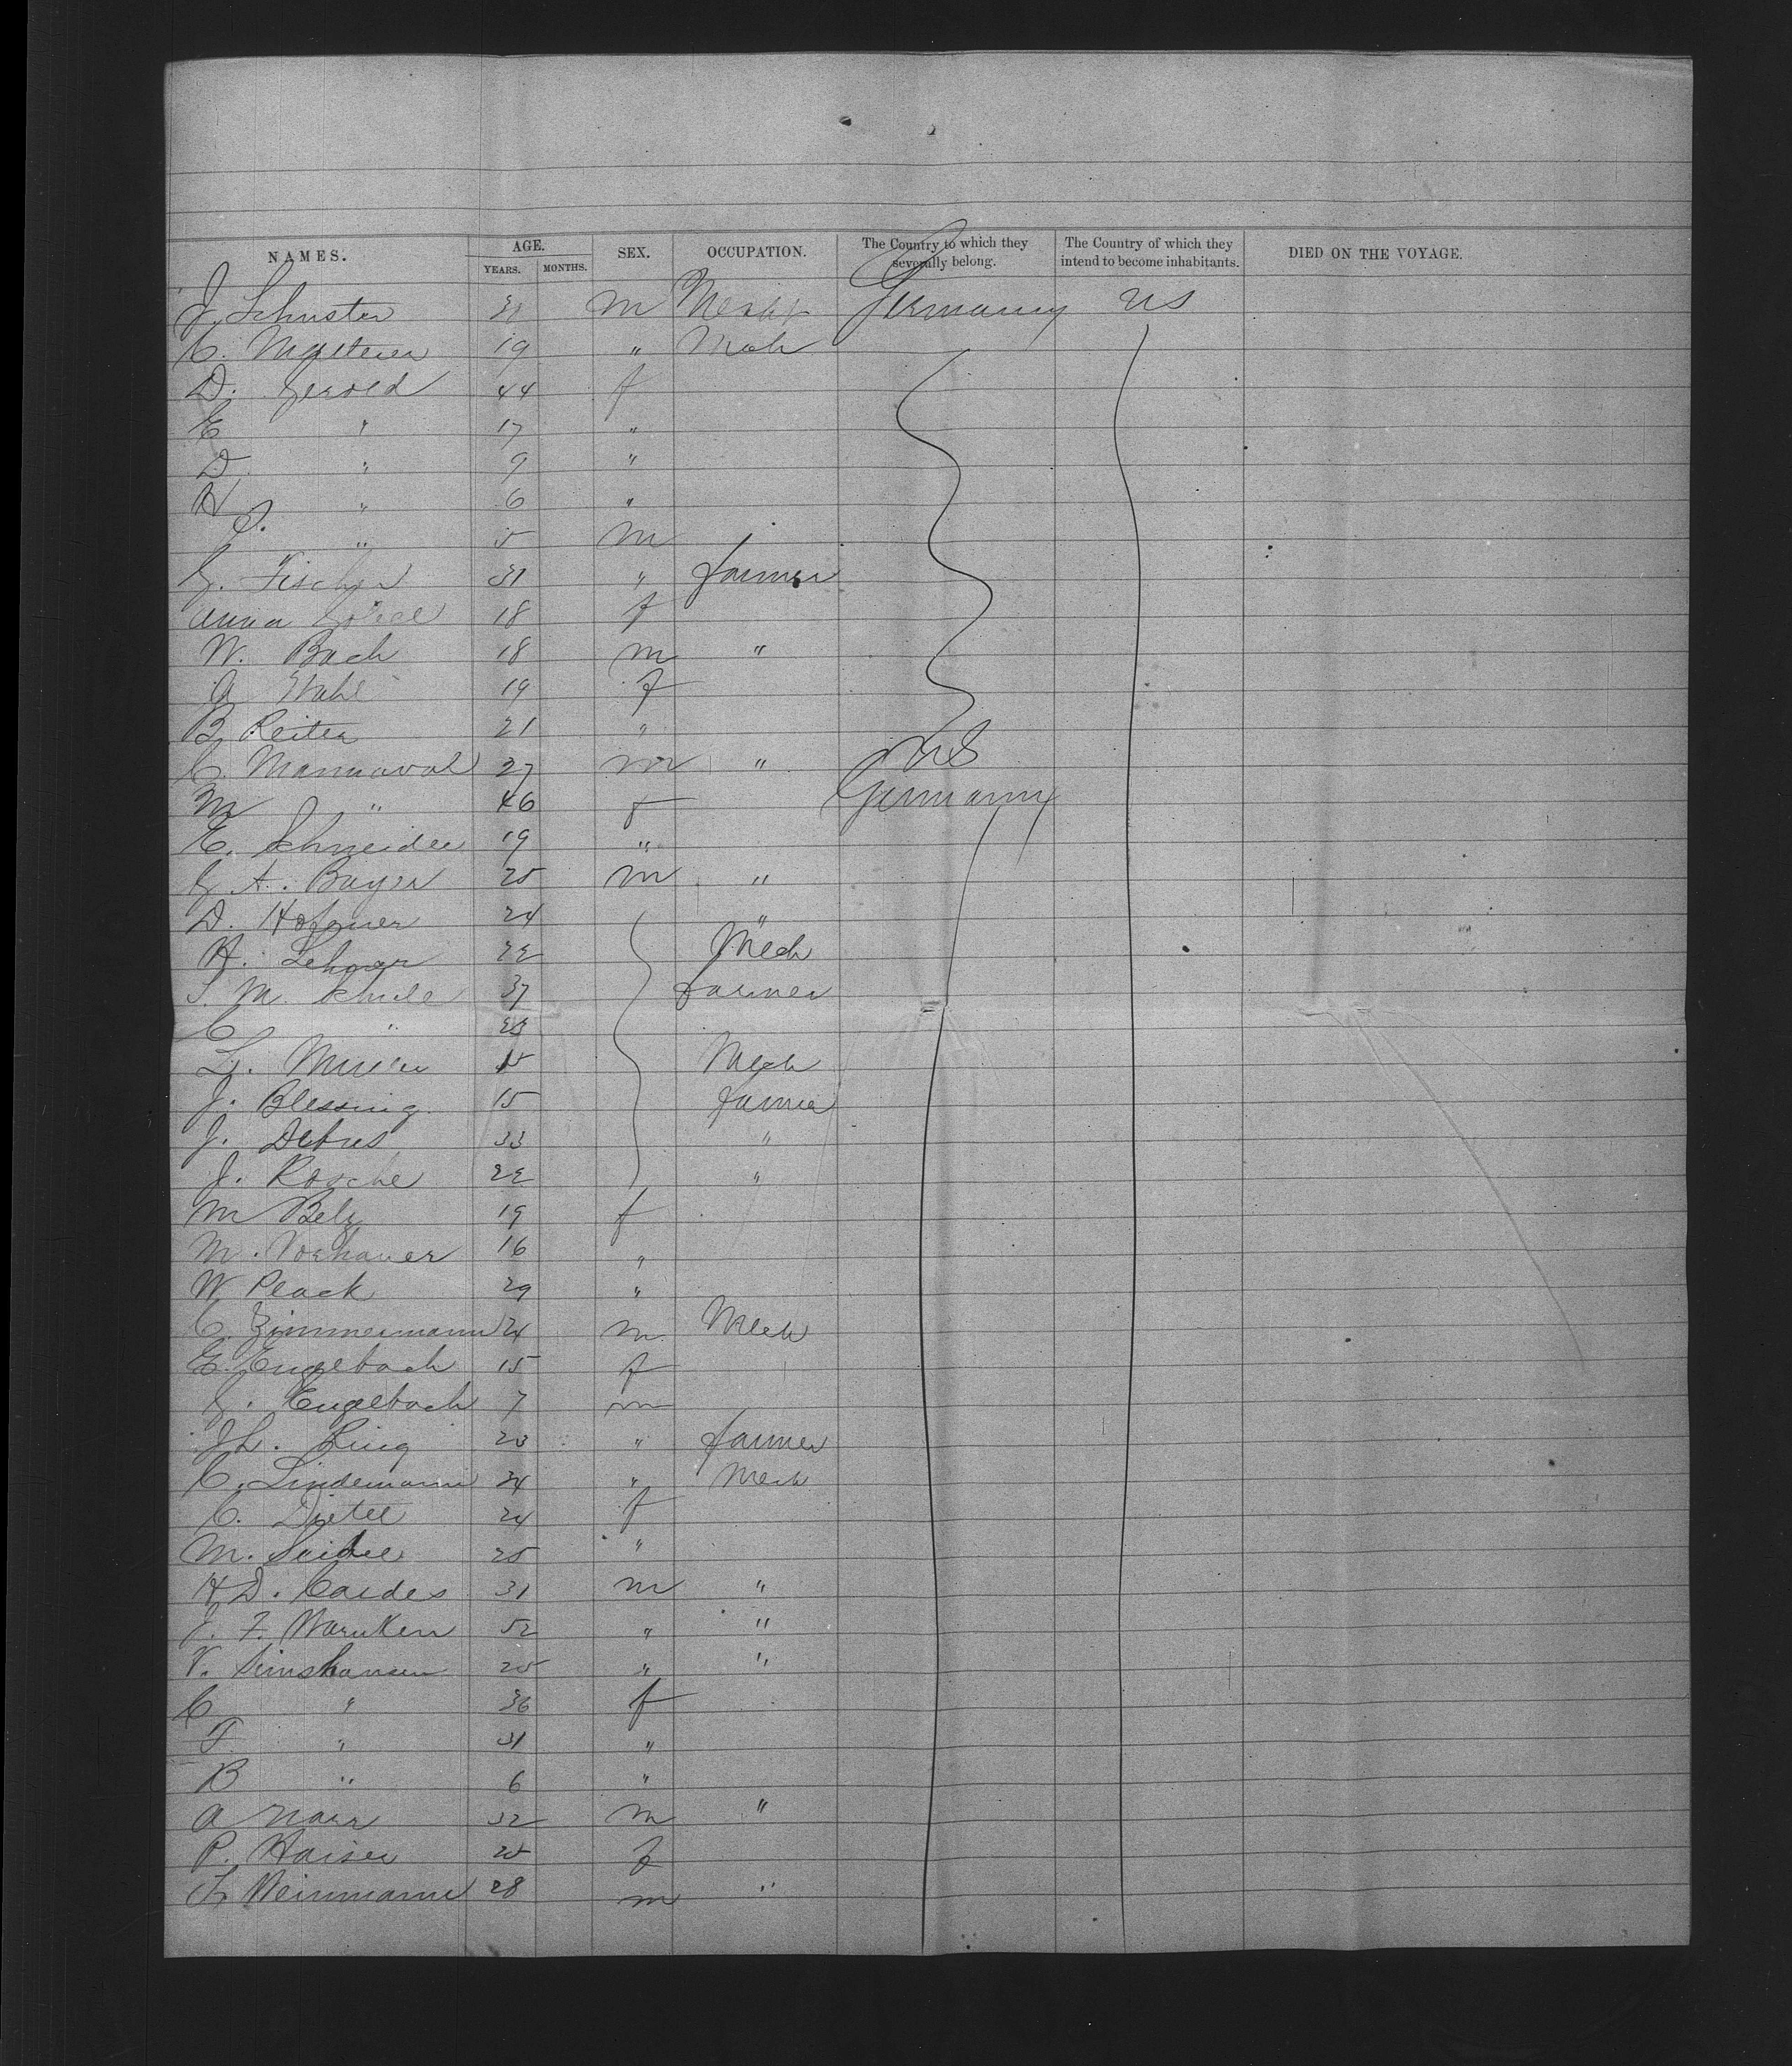 NAMES. AGE. YEARS. MONTHS. SEX. OCCUPATION. The Country to which they severally belong. The Country of which they intend to become inhabitants. DIED ON THE VOYAGE.
J. Schuster m Germany US
C. 19 "
D. Gerold 44 f
E " 17 "
D. " 9 "
H " 6 "
" 5 m
G. Fischer 31 " farmer
Anna 18 f
W. Bach 18 m "
A Stahl 19 f
B Reiter 21 "
C. Mannaval 27 m " US
M " 46 f Germany
E. Schneider 19 "
G A. Bayer 25 m "
D. Hofener 24 "
H. 22 Mech
S. M. Schule 37 farmer
C "
L. 15 Mech
J. Blessing 15 farmer
J. Debus 33 "
J. Rosche 22 "
M Belz 19 f
M. Vorhauer 16 "
W Plack 29 "
C. Zimmermann 24 m Mech
E. Engelbach 15 f
G. Engelbach 7 m
J L. Ring 23 " farmer
C. Lindemann 34 " Mech
C. 24 f
M. Seidel 25 "
H D. Cordes 31 m "
J. F. Warnken 52 " "
V. Simshauser 25 " "
C " 36 f
F " 31 "
B " 6 "
A 32 m "
P. Kaiser 25 f
L Weinmann 28 m "